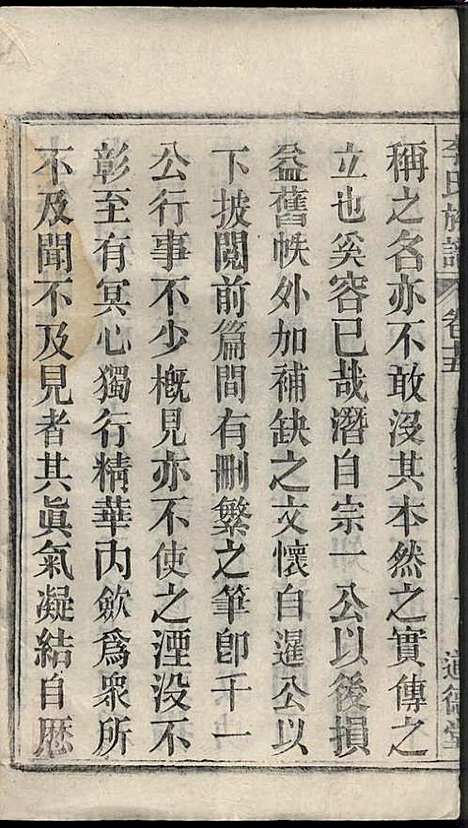 李氏族譜 卷十五 道德堂
稱之名亦不敢沒其本然之實傳之
立也奚容已哉潛自宗一公以後損
益舊帙外加補缺之文懷白暹公以
下披閱前篇間有刪繁之筆卽千一
公行事不少槪見亦不使之湮没不
彰至有冥心獨行精華內歛爲衆所
不及聞不及見者其眞氣凝結自歷